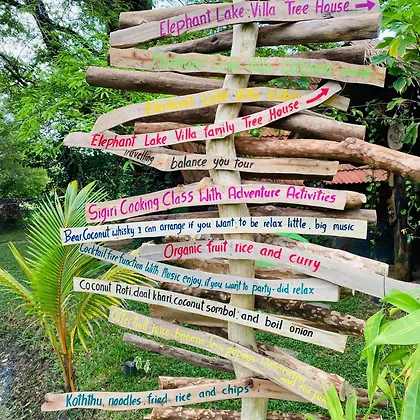 Elephant Lake Villa Tree House
Elephant Lake Villa
Elephant Lake Villa family Tree House
Travelling balance you Tour
Sigiri Cooking Class With Adventure Activities
Bear,Coconut whisky i can arrange if you want to be relax little, big music
Organic fruit rice and curry
Cocktail fire function With Music enjoy, if you want to party-did relax
Coconut Roti,daal kharl,coconut sombol, and boil onion
fruit juice, banana
Koththu, noodles, fried rice and chips